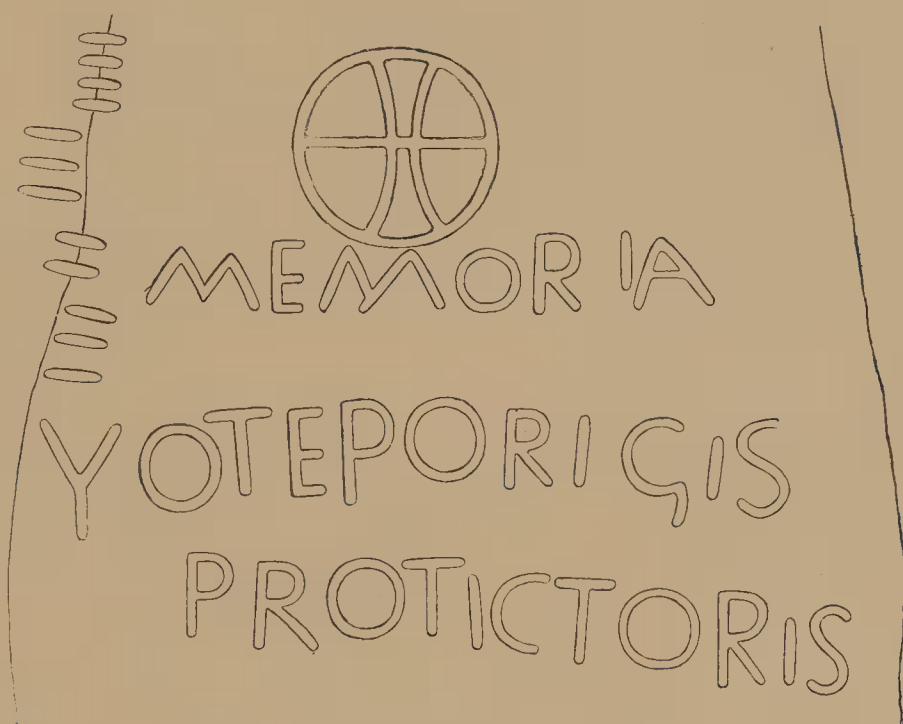 ᚃᚑᚈᚓ
MEMORIA
YOTEPORIGIS
PROTICTORIS